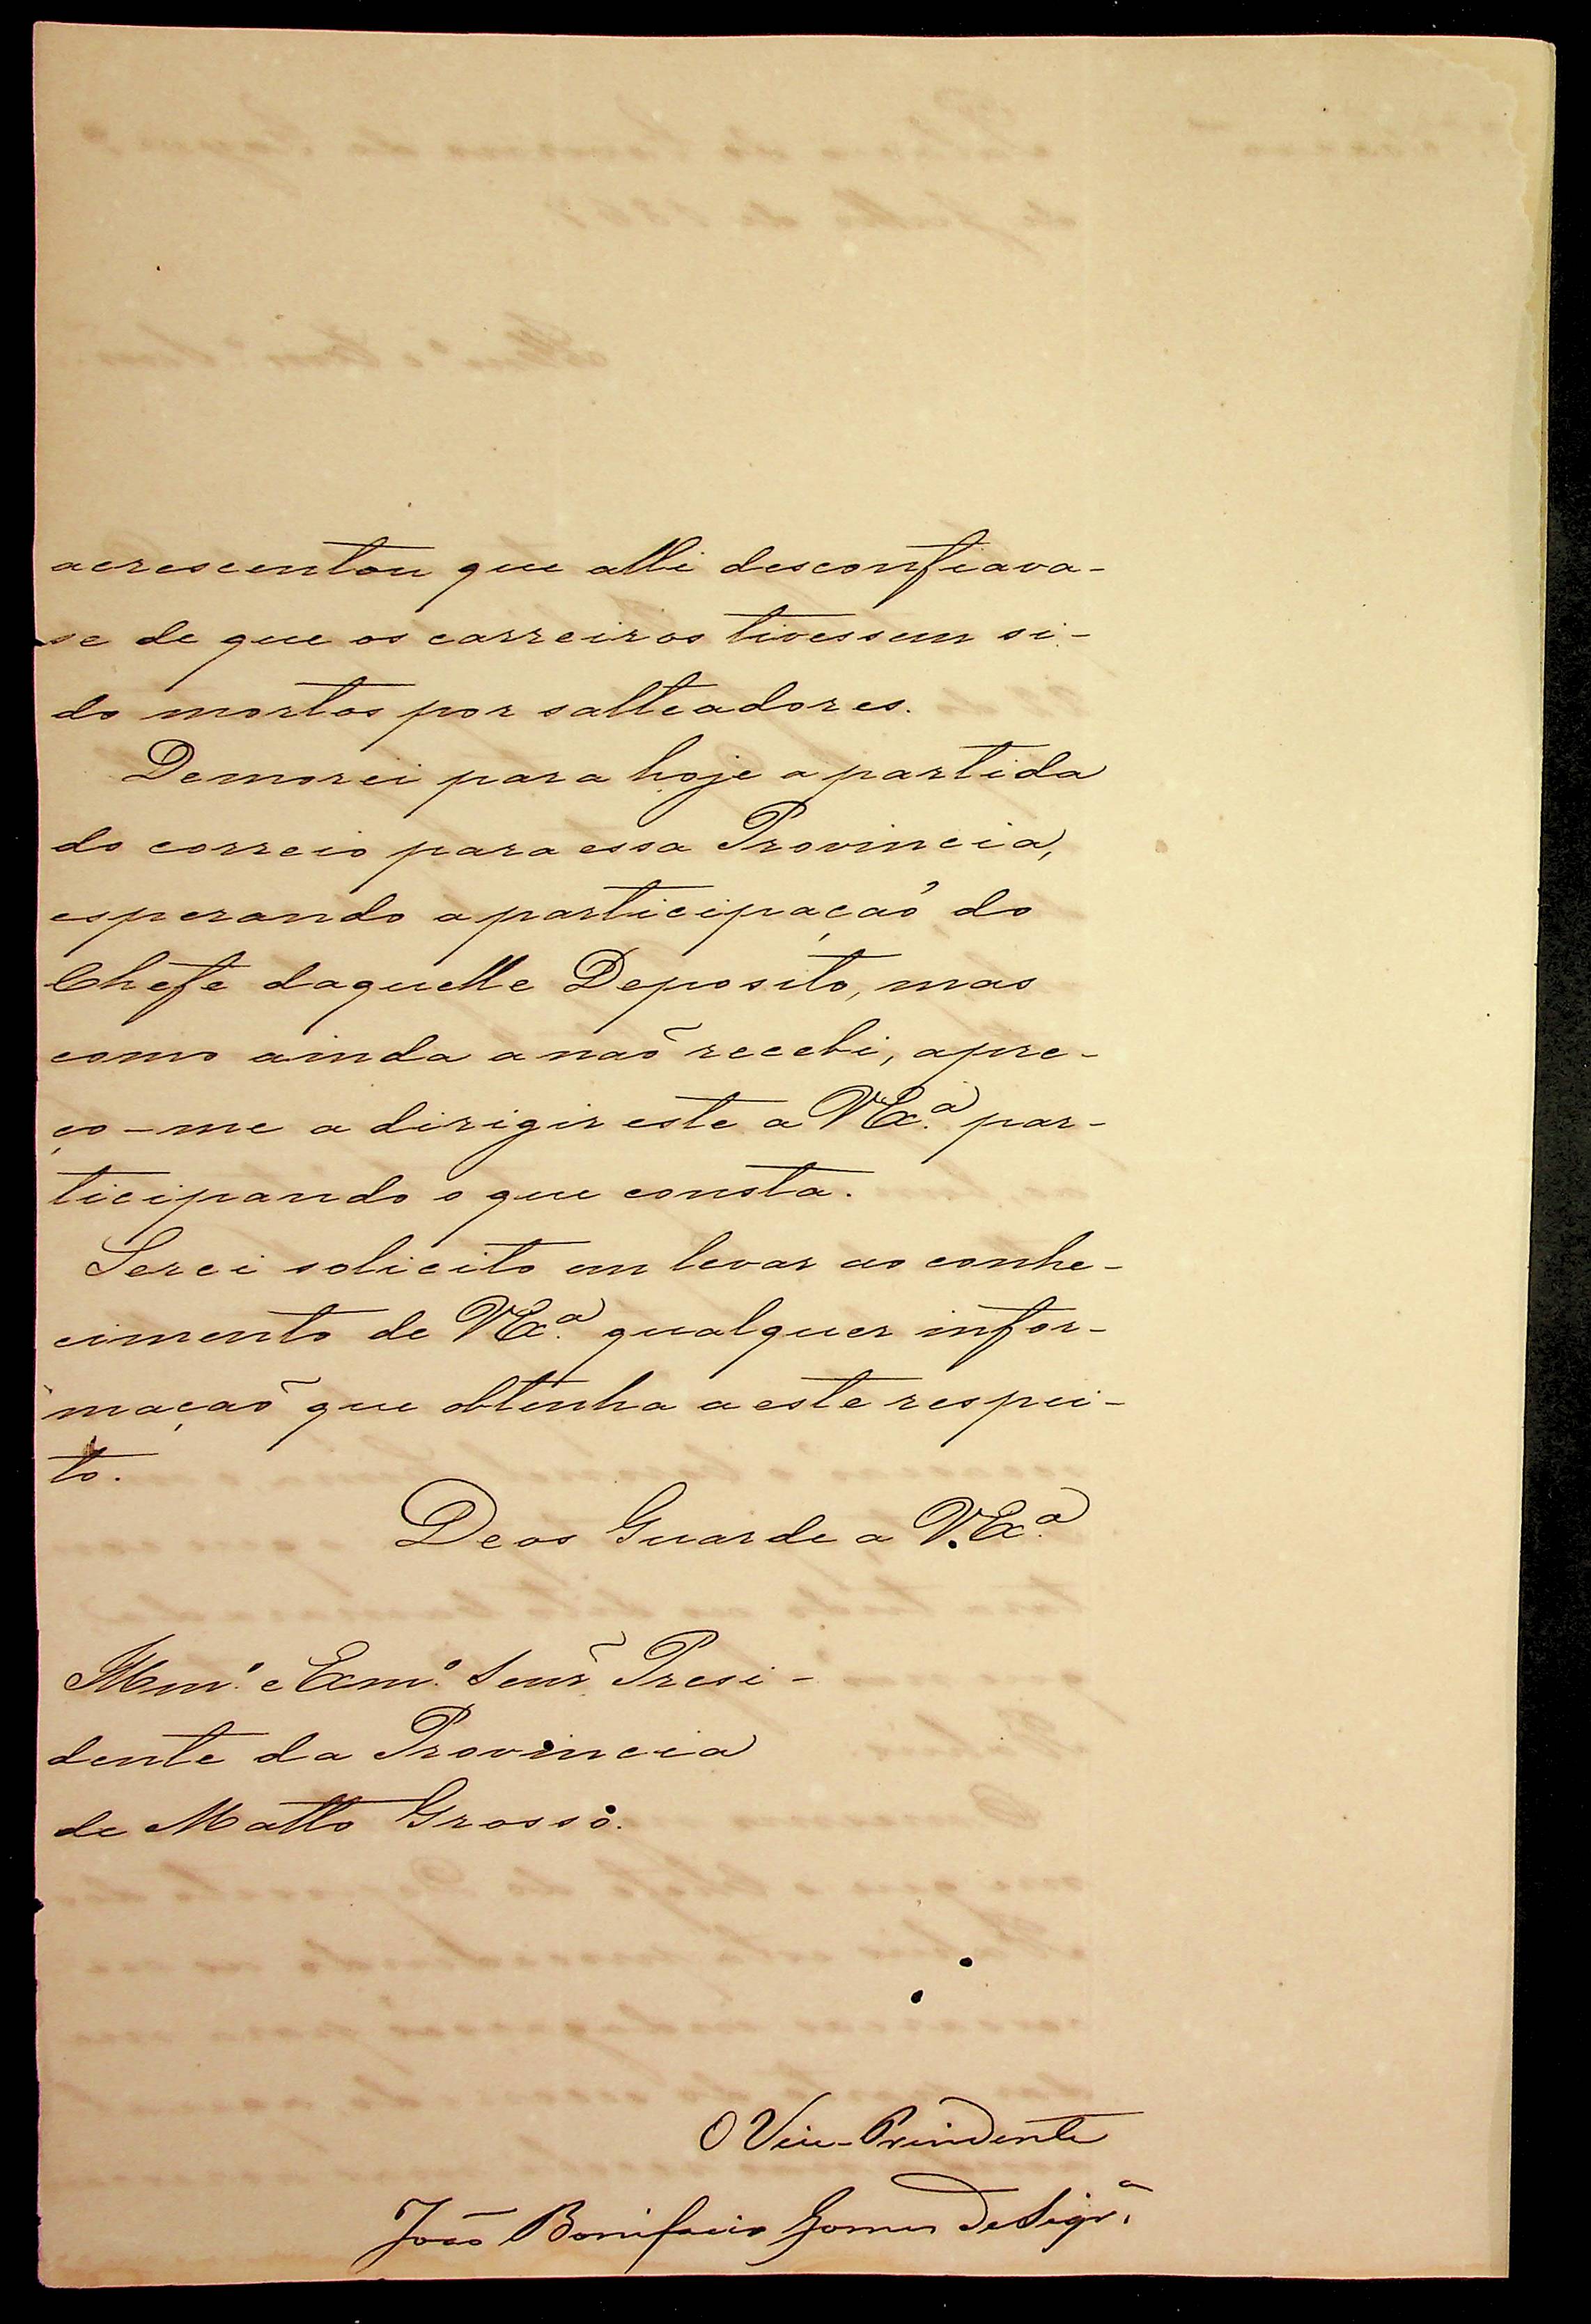 acrescentou que alli desconfiava-
se de que os carreiros tivessem si-
do mortos por salteadores.
Demorei para hoje a partida
do correio para essa Provincia,
esperando a participaçaõ do
Chefe daquelle Deposito, mas
como ainda a naõ recebi, apre-
ço-me a dirigir este a VEx.ª par-
ticipando o que consta.
Serei solicito em levar ao conhe-
cimento de VEx.ª qualquer infor-
maçaõ que obtenha a este respei-
to.
Deos Guarde a V.Ex.ª
Illm.º e Exm.º Senr̃ Presi-
dente da Provincia
de Matto Grosso.
O Vice-Presidente
João Bonifacio Gomes de Siqr.ª